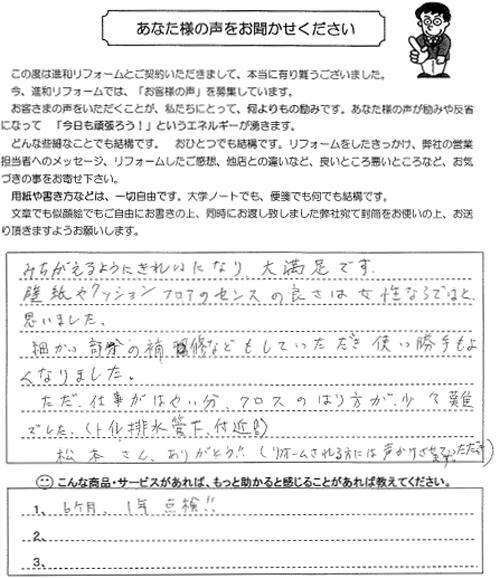 あなた様の声をお聞かせください
この度は進和リフォームとご契約いただきまして、本当に有り難うございました。
今、進和リフォームでは、「お客様の声」を募集しています。
お客さまの声をいただくことが、私たちにとって、何よりもの励みです。あなた様の声が励みや反省
になって 「今日も頑張ろう！」というエネルギーが湧きます。
どんな些細なことでも結構です。 おひとつでも結構です。リフォームをしたきっかけ、弊社の営業
担当者へのメッセージ、リフォームしたご感想、他店との違いなど、良いところ悪いところなど、お気
づきの事をお寄せ下さい。
用紙や書き方などは、一切自由です。大学ノートでも、便箋でも何でも結構です。
文章でも似顔絵でもご自由にお書きの上、同時にお渡し致しました弊社宛て封筒をお使いの上、お送
り頂きますようお願いします。
みちがえるようにきれいになり、大満足です。
壁紙やクッションフロアのセンスの良さは女性ならではと、
思いました。
細かい部分の補修などもしていただき使い勝手もよ
くなりました。
ただ、仕事がはやい分、クロスのはり方が、少々難
でした。(トイレ排水管下、付近)
松本さん、ありがとう!! (リフォームされる方には声かけさせていただきます)
こんな商品・サービスがあれば、もっと助かると感じることがあれば教えてください。
1、6ヶ月、1年 点検!!
2、
3、